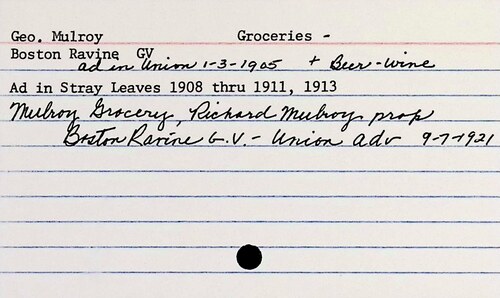 Geo. Mulroy Groceries -
Boston Ravine GV
ad in Union 1-3-1905 + Beer-wine
Ad in Stray Leaves 1908 thru 1911, 1913
Mulroy Grocery, Richard Mulroy prop
Boston Ravine G.V. - Union adv 9-7-1921